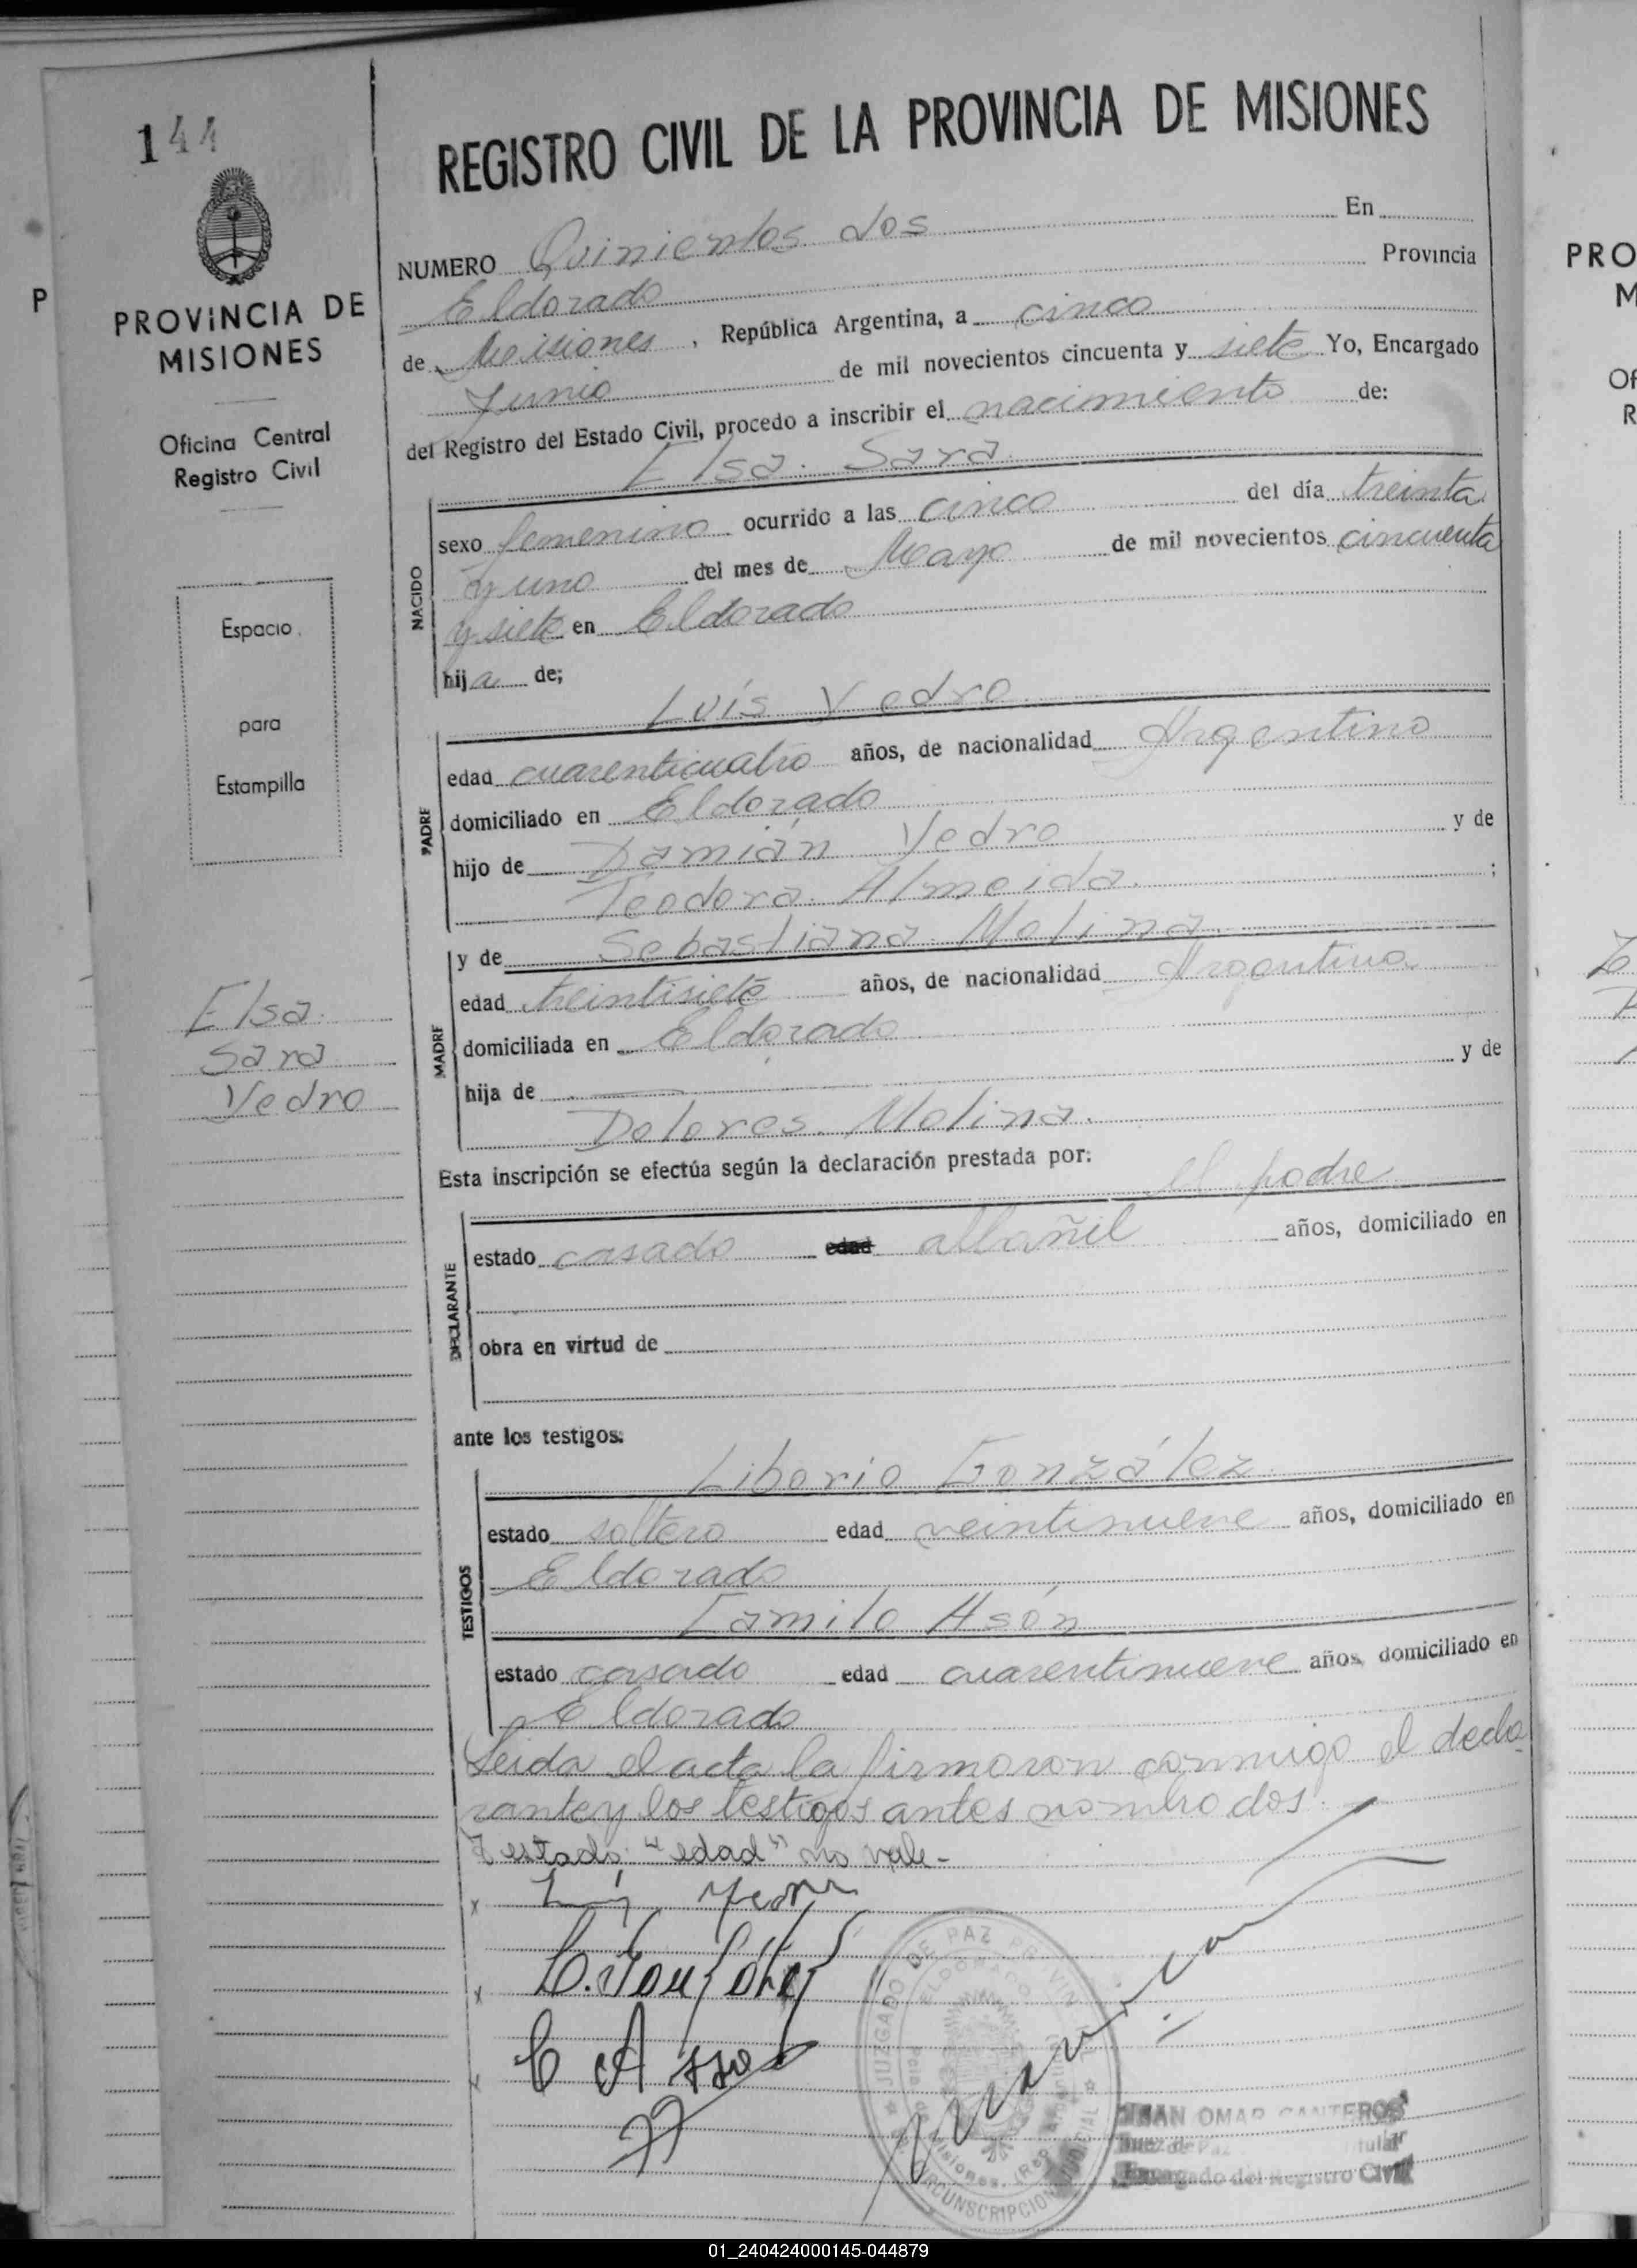 144
REGISTRO CIVIL DE LA PROVINCIA DE MISIONES
PROVINCIA DE
MISIONES
Oficina Central
Registro Civil
Espacio
para
Estampilla
Elsa
Sara
Vedro
NUMERO Quinientos dos En
Eldorado Provincia
de Misiones, República Argentina, a cinco
Junio de mil novecientos cincuenta y siete Yo, Encargado
del Registro del Estado Civil, procedo a inscribir el nacimiento de:
Elsa Sara
NACIDO
sexo femenino ocurrido a las cinco del día treinta
y uno del mes de Mayo de mil novecientos cincuenta
y siete en Eldorado
hija de;
Luis Vedro
PADRE
edad cuarenticuatro años, de nacionalidad Argentino
domiciliado en Eldorado
hijo de Damián Vedro y de
Teodora Almeida ;
y de Sebastiana Molina
MADRE
edad treintisiete años, de nacionalidad Argentina
domiciliada en Eldorado
hija de — y de
Dolores Molina.
Esta inscripción se efectúa según la declaración prestada por:
el padre
DECLARANTE
estado casado edad albañil años, domiciliado en
obra en virtud de
ante los testigos:
Liborio González
TESTIGOS
estado soltero edad veintinueve años, domiciliado en
Eldorado
Camilo Asón
estado casado edad cuarentinueve años, domiciliado en
Eldorado
Leida el acta la firmaron conmigo el decla
rante y los testigos antes nombrados.
Testado: "edad" no vale-
JUZGADO DE PAZ
ELDORADO
CIRCUNSCRIPCION JUDICIAL
JUAN OMAR CANTEROS
Juez de Paz Titular
Encargado del Registro Civil
PRO
M
Of
R
P
01_240424000145-044879